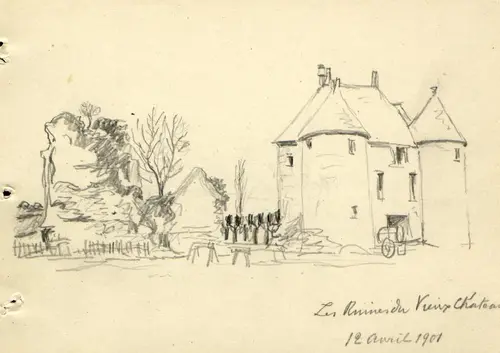 Les Ruines du Vieux Chateau
12 Avril 1901